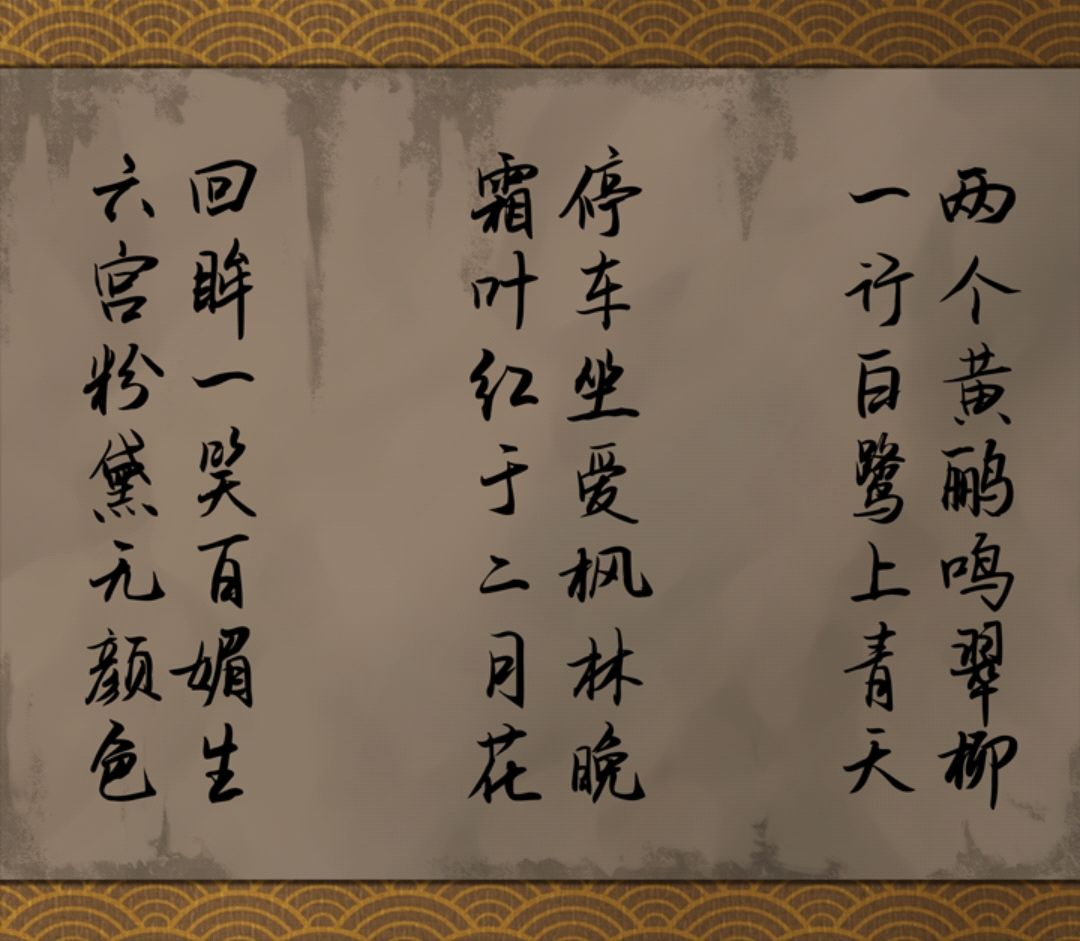 两个黄鹂鸣翠柳
一行白鹭上青天
停车坐爱枫林晚
霜叶红于二月花
回眸一笑百媚生
六宫粉黛无颜色